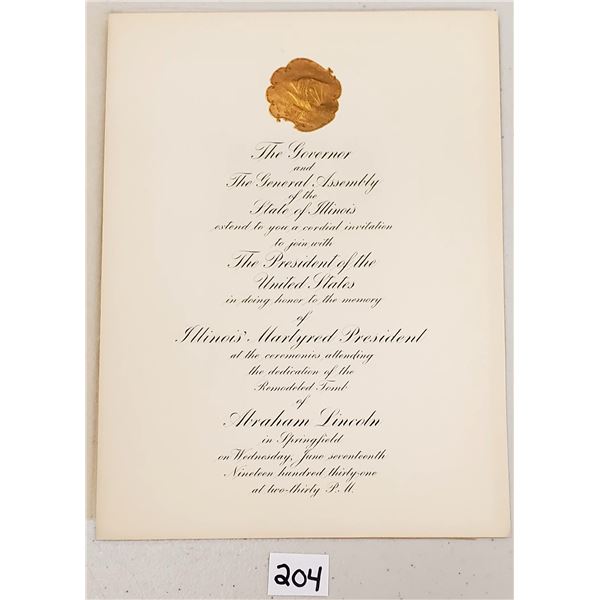 The Governor
and
The General Assembly
of the
State of Illinois
extend to you a cordial invitation
to join with
The President of the
United States
in doing honor to the memory
of
Illinois' Martyred President
at the ceremonies attending
the dedication of the
Remodeled Tomb
of
Abraham Lincoln
in Springfield
on Wednesday, June seventeenth
Nineteen hundred thirty-one
at two-thirty P.M.
204